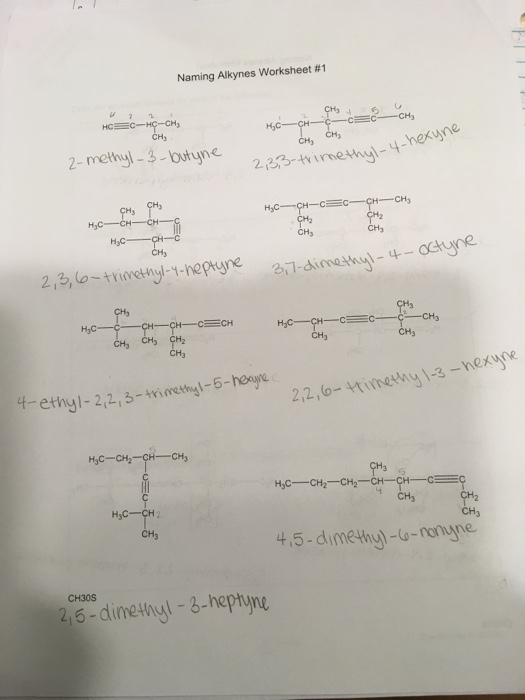 Naming Alkynes Worksheet #1
HC≡C—HC—CH₃
CH₃
2-methyl-3-butyne
CH₃ 4 5 6
H₃C—CH—C—C≡C—CH₃
CH₃ CH₃
2,3,3-trimethyl-4-hexyne
CH₃ CH₃
H₃C—CH—CH—C
H₃C—CH—C
CH₃
2,3,6-trimethyl-4-heptyne
H₃C—CH—C≡C—CH—CH₃
CH₂ CH₂
CH₃ CH₃
3,7-dimethyl-4-octyne
CH₃
H₃C—C—CH—CH—C≡CH
CH₃ CH₃ CH₂
CH₃
4-ethyl-2,2,3-trimethyl-5-hexyne
CH₃
H₃C—CH—C≡C—C—CH₃
CH₃ CH₃
2,2,6-trimethyl-3-hexyne
H₃C—CH₂—CH—CH₃
C
C
H₃C—CH₂
CH₃
CH₃ 5
H₃C—CH₂—CH₂—CH—CH—C≡C
4 CH₃ CH₂
CH₃
4,5-dimethyl-6-nonyne
CH30S
2,5-dimethyl-3-heptyne